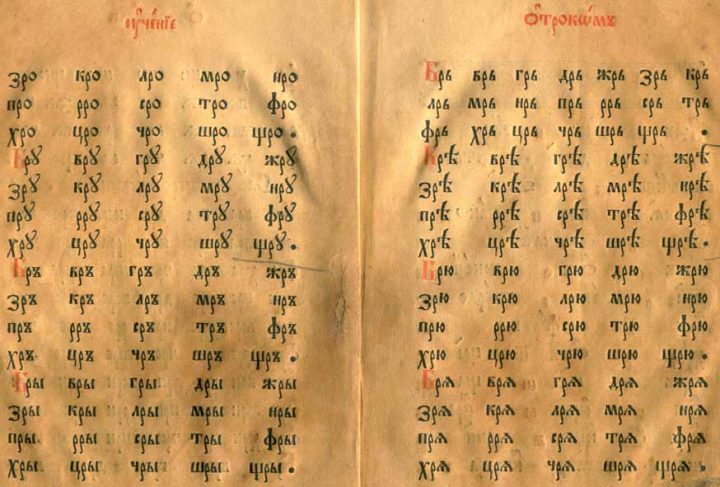 оу҆че́нїе
Зро кро лро мро нро
про рро сро тро фро
хро цро чро шро щро •
Брꙋ врꙋ грꙋ дрꙋ жрꙋ
Зрꙋ крꙋ лрꙋ мрꙋ нрꙋ
прꙋ ррꙋ срꙋ трꙋ фрꙋ
хрꙋ црꙋ чрꙋ шрꙋ щрꙋ •
Бръ връ гръ дръ жръ
Зръ кръ лръ мръ нръ
пръ рръ сръ тръ фръ
хръ цръ чръ шръ щръ •
Бры вры гры дры жры
Зры кры лры мры нры
пры рры сры тры фры
хры цры чры шры щры •
Ѻ҆трокѡ́мъ
Брь врь грь дрь жрь Зрь крь
лрь мрь нрь прь ррь срь трь
фрь хрь црь чрь шрь щрь •
Брѣ врѣ грѣ дрѣ жрѣ
Зрѣ крѣ лрѣ мрѣ нрѣ
прѣ ррѣ срѣ трѣ фрѣ
хрѣ црѣ чрѣ шрѣ щрѣ •
Брю врю грю дрю жрю
Зрю крю лрю мрю нрю
прю ррю срю трю фрю
хрю црю чрю шрю щрю •
Брѧ врѧ грѧ дрѧ жрѧ
Зрѧ крѧ лрѧ мрѧ нрѧ
прѧ ррѧ срѧ трѧ фрѧ
хрѧ црѧ чрѧ шрѧ щрѧ •